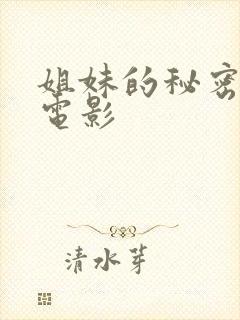 姐妹的秘密
電影
清水芽